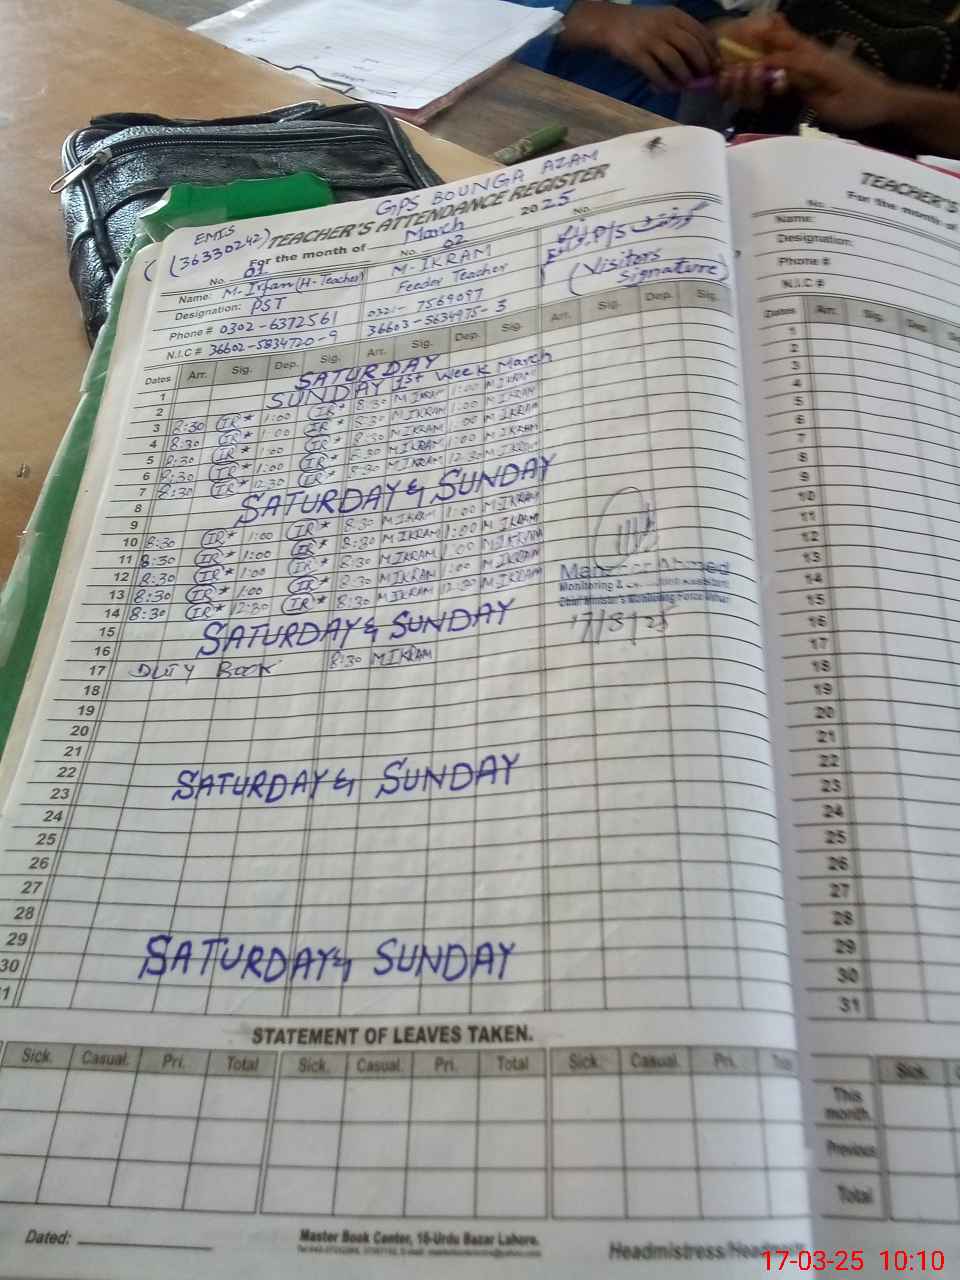 GPS BOUNGA AZAM
TEACHER'S ATTENDANCE REGISTER
EMIS
(36330242)
For the month of March 2025
No. 01 No. 02 No.
Name: M-Irfan (H-Teacher) M-IKRAM
Designation: PST Feeder Teacher
(Visitors Signature)
Phone # 0302-6372561 0321-7569097
N.I.C # 36602-5834720-9 36603-5634975-3
Dates Arr. Sig. Dep. Sig. Arr. Sig. Dep. Sig. Arr. Sig. Dep. Sig.
1 SATURDAY
2 SUNDAY 1st Week March
3 8:30 IR* 1:00 IR* 8:30 MIKRAM 1:00 MIKRAM
4 8:30 IR* 1:00 IR* 8:30 MIKRAM 1:00 MIKRAM
5 8:30 IR* 1:00 IR* 8:30 MIKRAM 1:00 MIKRAM
6 8:30 IR* 1:00 IR* 8:30 MIKRAM 1:00 MIKRAM
7 8:30 IR* 12:30 IR* 8:30 MIKRAM 12:30 MIKRAM
8 SATURDAY & SUNDAY
9
10 8:30 IR* 1:00 IR* 8:30 MIKRAM 1:00 MIKRAM
11 8:30 IR* 1:00 IR* 8:30 MIKRAM 1:00 MIKRAM
12 8:30 IR* 1:00 IR* 8:30 MIKRAM 1:00 MIKRAM
13 8:30 IR* 1:00 IR* 8:30 MIKRAM 1:00 MIKRAM
14 8:30 IR* 12:30 IR* 8:30 MIKRAM 12:30 MIKRAM
Ahmed
Monitoring & Assistant
Chief Minister's Monitoring Force
15 SATURDAY & SUNDAY
16
17 DUTY BOOK 8:30 MIKRAM
18
19
20
21
22 SATURDAY & SUNDAY
23
24
25
26
27
28
29 SATURDAY & SUNDAY
30
STATEMENT OF LEAVES TAKEN.
Sick. Casual. Pri. Total Sick. Casual. Pri. Total Sick. Casual. Pri.
Dated:
Master Book Center, 16-Urdu Bazar Lahore.
TEACHER'S
No.
For the month of
Name:
Designation:
Phone #
N.I.C #
Dates Arr. Sig. Dep.
1
2
3
4
5
6
7
8
9
10
11
12
13
14
15
16
17
18
19
20
21
22
23
24
25
26
27
28
29
30
31
Sick.
This month.
Previous
Total
17-03-25 10:10